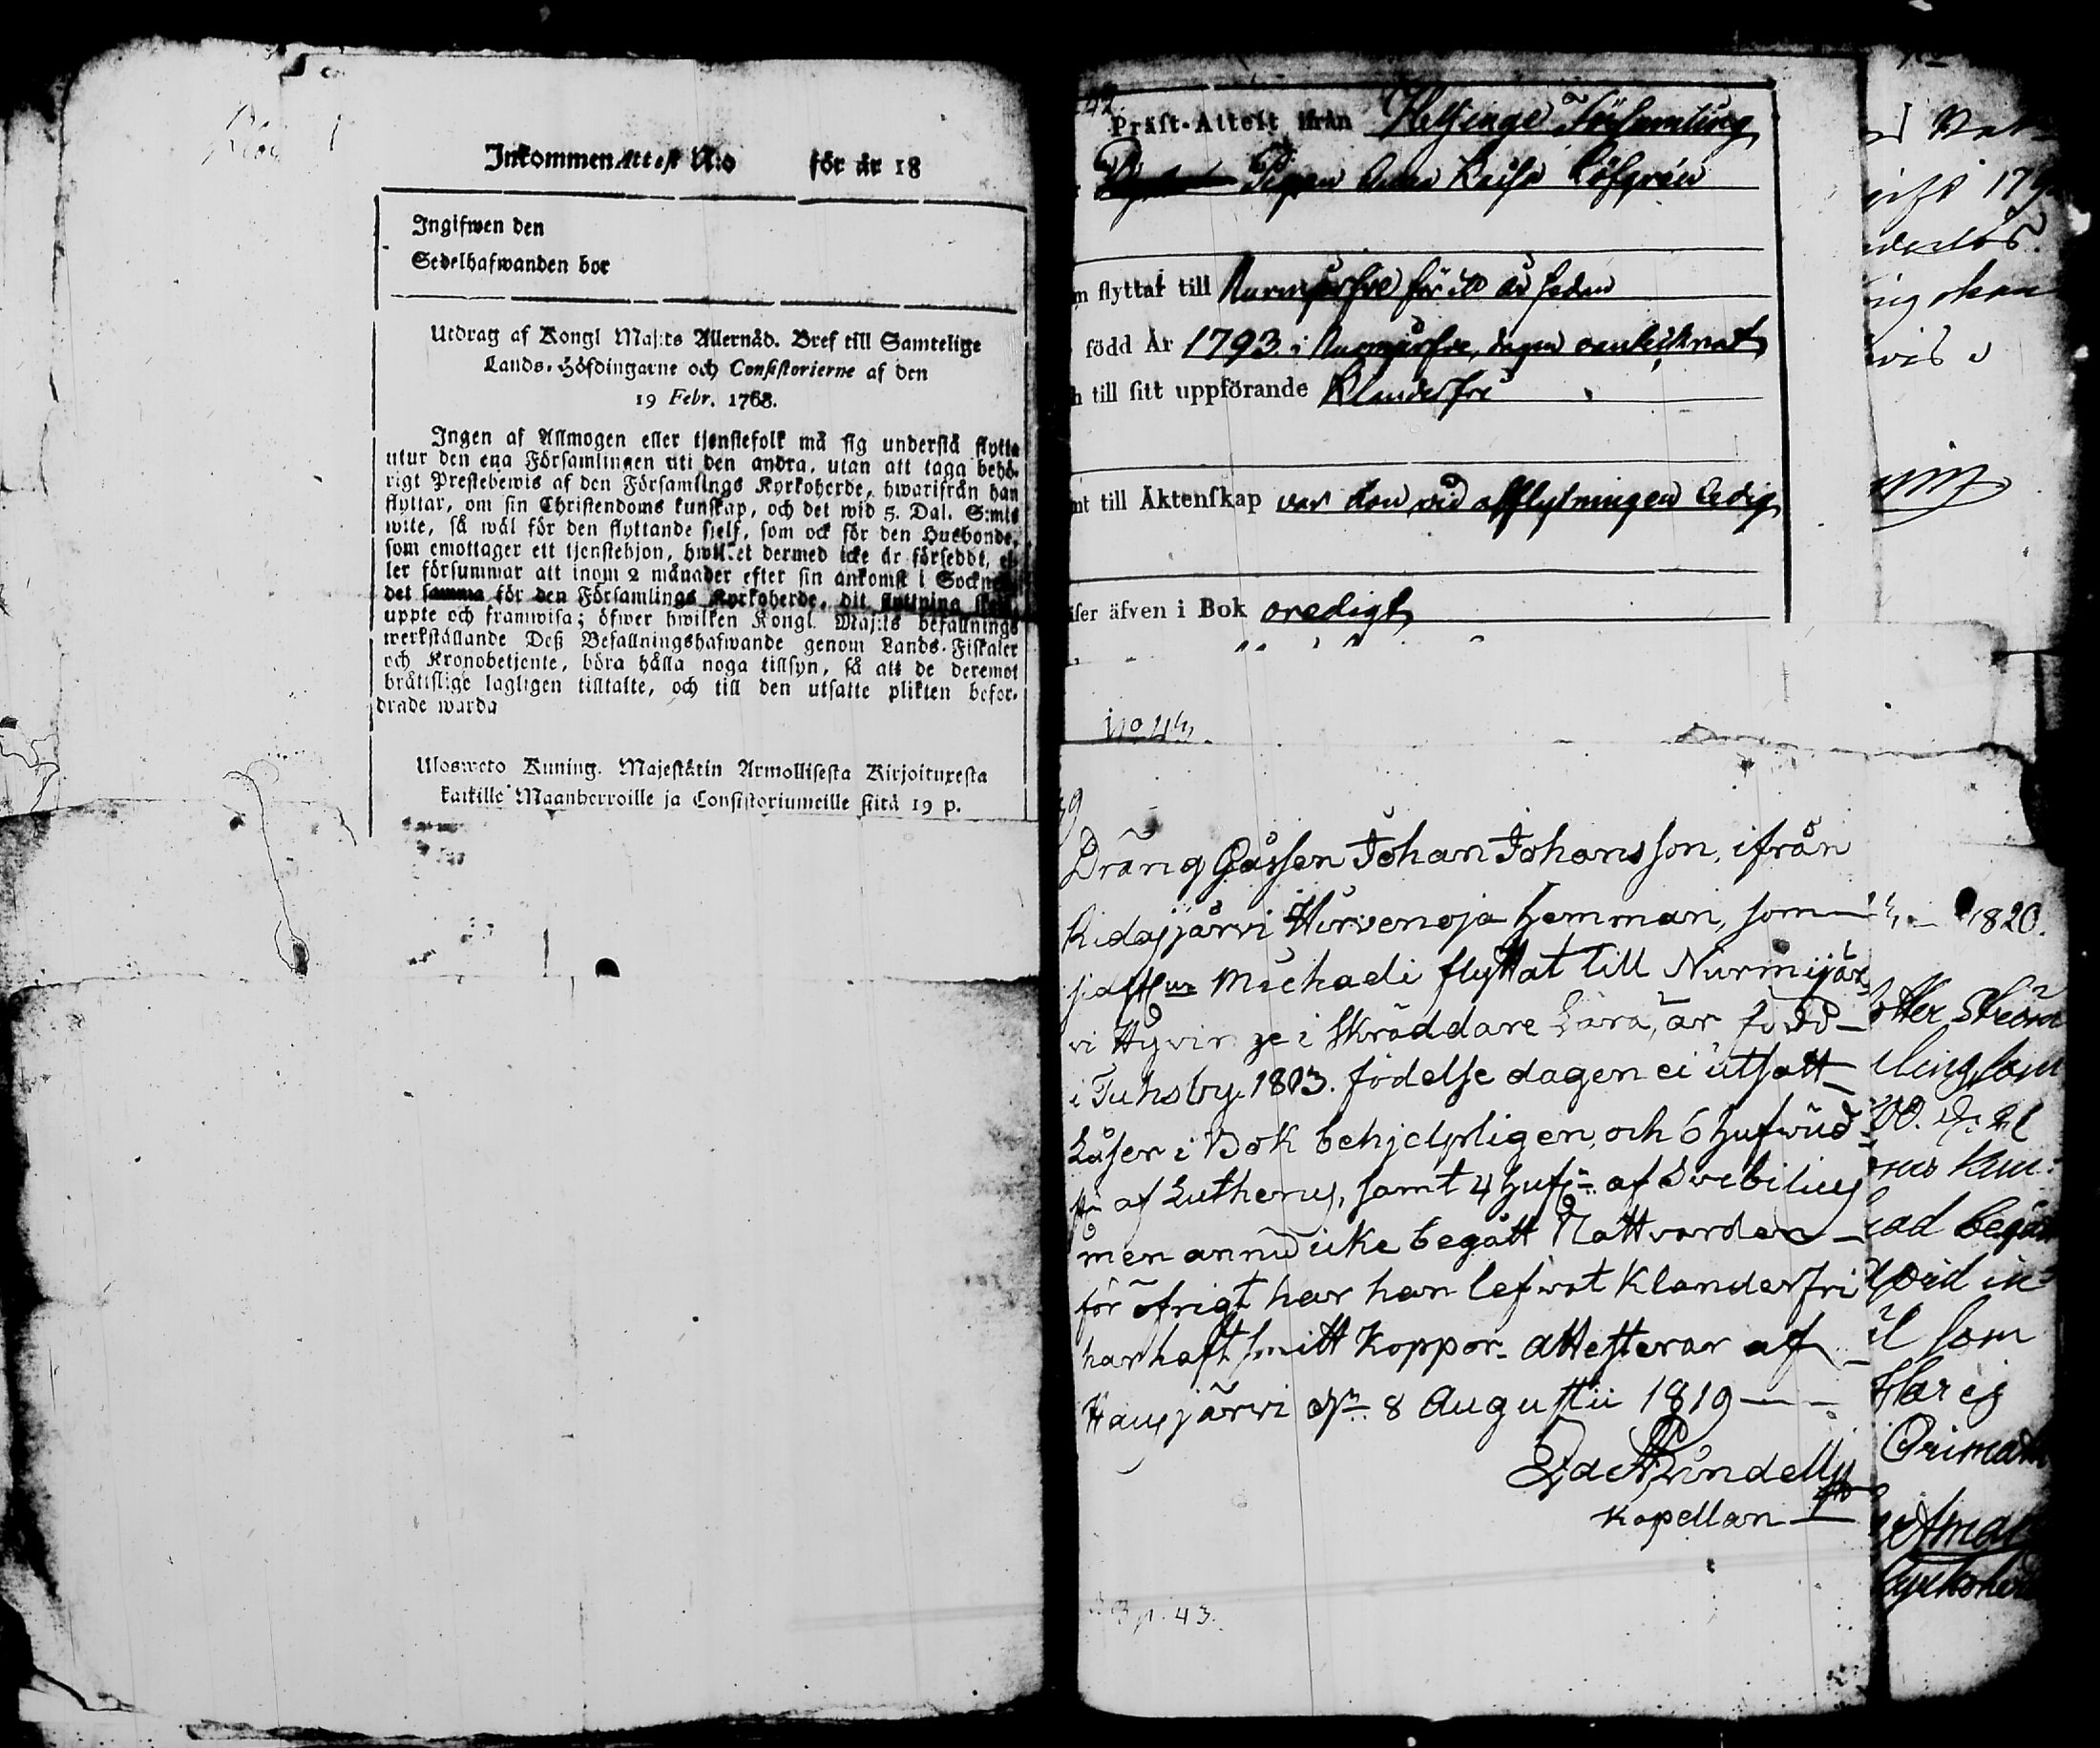 Inkommen Attest N:o för år 18
Ingifwen den
Sedelhafwanden bor
Utdrag af Kongl Maj:ts Allernåd. Bref till Samtelige
Lands-Höfdingarne och Consistorierne af den
19 Febr. 1768.
Ingen af Allmogen eller tjenstefolk må sig understå flytta
utur den ena Församlingen uti den andra, utan att taga behö-
rigt Prestebewis af den Församlings Kyrkoherde, hwarifrån han
flyttar, om sin Christendoms kunskap, och det wid 5. Dal. S:mts
wite, så wäl för den flyttande sjelf, som ock för den Husbonde,
som emottager ett tjenstehjon, hwilket dermed icke är försedt, el-
ler försummar att inom 2 månader efter sin ankomst i Sockn
det samma för den Församlings Kyrkoherde, dit flyttning
uppte och framwisa; öfwer hwilken Kongl. Maj:ts befallnings
werkställande Deß Befallningshafwande genom Lands-Fiskaler
och Kronobetjente, böra hålla noga tillsyn, så att de deremot
bråttslige lagligen tilltalte, och till den utsatte plikten befor-
drade warda
Ulosweto Kuning. Majestätin Armollisesta Kirjoituxesta
kaikille Maanherroille ja Consistoriumeille siitä 19 p.
42.
Präst-Attest ifrån Helsinge Församling
Pigan Anna Kaisa Löfgrén
m flyttat till Nurmijärvi för ett år sedan
född År 1793 i Nurmijärvi, dagen oantecknat
h till sitt uppförande Klanderfri
mt till Äktenskap var hon vid afflytningen ledig
iser äfven i Bok oredigt
No 43.
Dräng Gåssen Johan Johansson, ifrån
Ridasjärvi Hirvenoja Hemman, som
sistl. Michaeli flyttat till Nurmijär
vi Hyvinge i Skräddare Lära, är född
i Tuhsby 1803. födelse dagen ei utsatt
Läser i Bok behjelpligen, och 6 Hufwud
st. af Lutherus, samt 4 Huf. af Svebilius
men ännu icke begått Nattvarden
för öfrigt har han lefwat Klanderfri
har haft smitt Koppor. Attesterar af
Hausjärvi d. 8 Augustii 1819
Lindell
Kapellan
p. 43.
1820.
ling som
ad begått
il som
Har ej